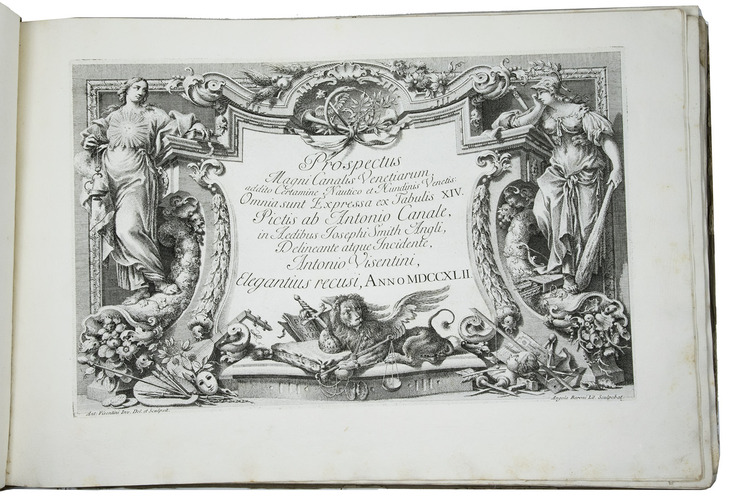 Prospectus
Magni Canalis Venetiarum,
addito Certamine Nautico et Nundinis Venetis:
Omnia sunt Expressa ex Tabulis XIV.
Pictis ab Antonio Canale,
in Aedibus Josephi Smith Angli,
Delineante atque Incidente,
Antonio Visentini,
Elegantius recusi, ANNO MDCCXLII.
Ant. Visentini Inv. Del. et Sculpsit.
Angela Baroni Lit. Sculpebat